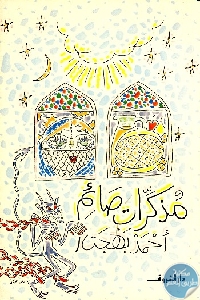 مذكرات صائم
أحمد بهجت
دار الشروق